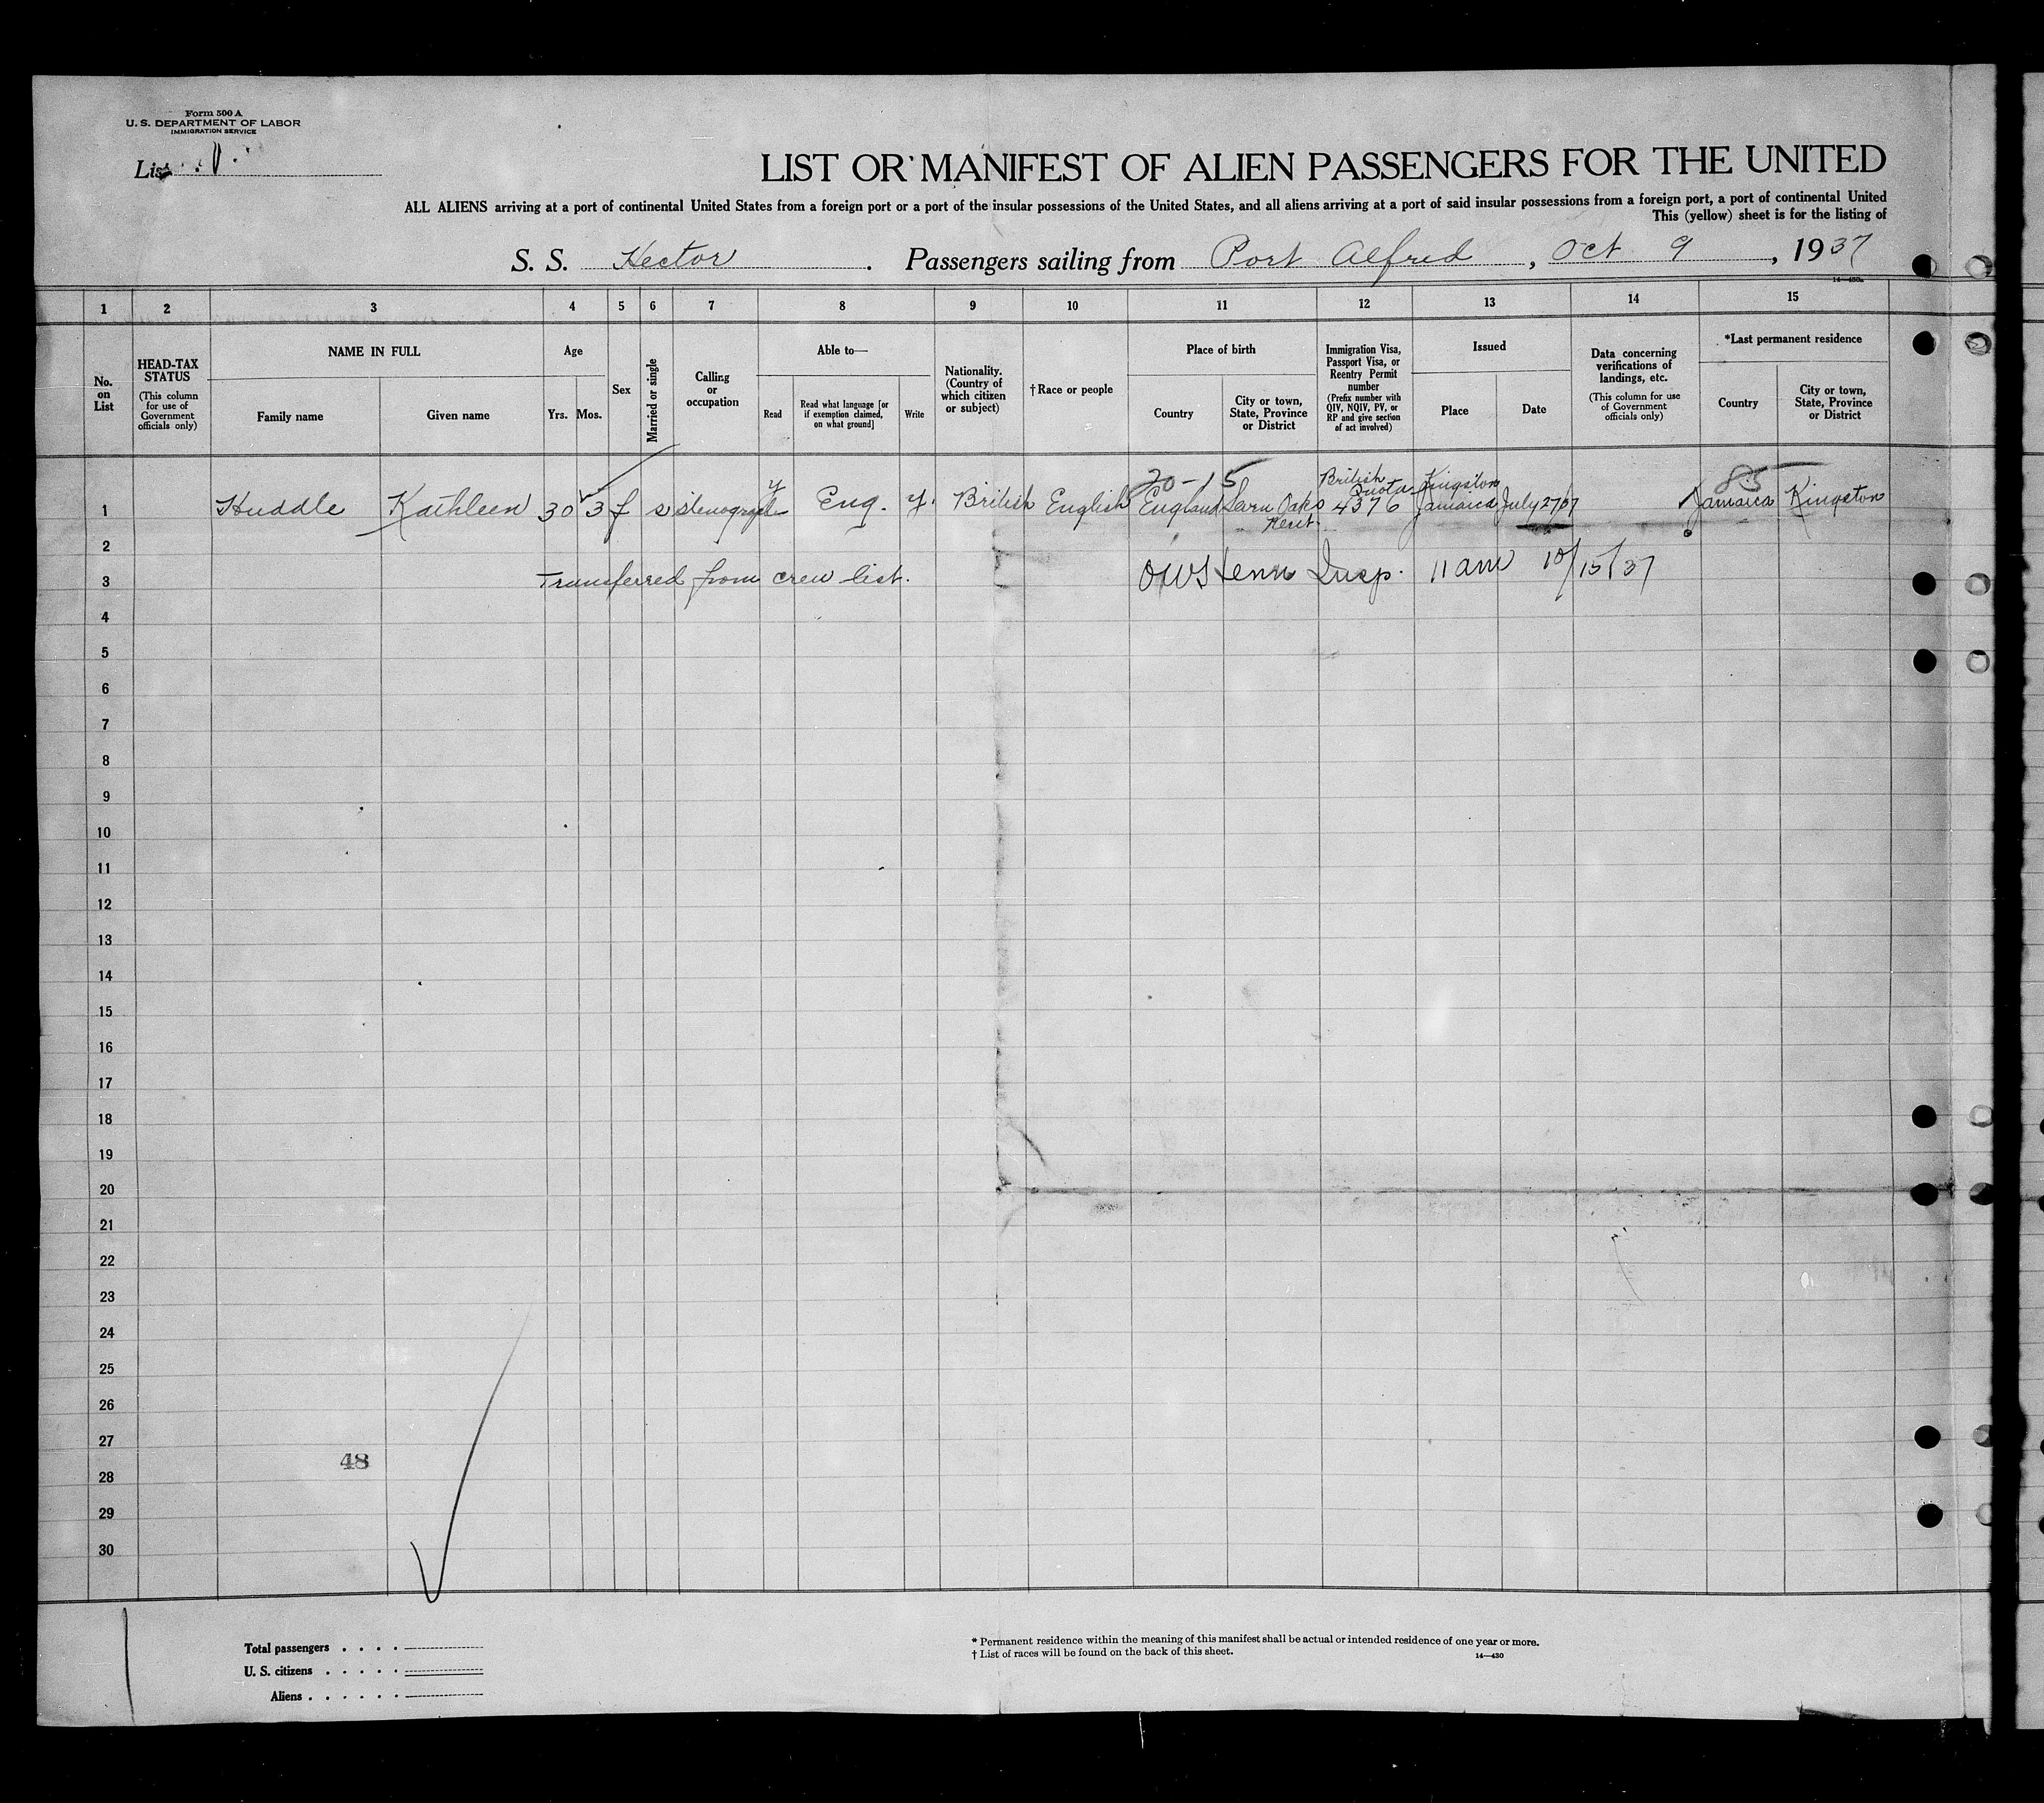 Form 500 A
U. S. DEPARTMENT OF LABOR
IMMIGRATION SERVICE
List
LIST OR MANIFEST OF ALIEN PASSENGERS FOR THE UNITED
ALL ALIENS arriving at a port of continental United States from a foreign port or a port of the insular possessions of the United States, and all aliens arriving at a port of said insular possessions from a foreign port, a port of continental United
This (yellow) sheet is for the listing of
S. S. Hector. Passengers sailing from Port Alfred, Oct 9, 1937
14—430a
1 2 3 4 5 6 7 8 9 10 11 12 13 14 15
No. on List
HEAD-TAX STATUS
(This column for use of Government officials only)
NAME IN FULL
Family name
Given name
Age
Yrs. Mos.
Sex
Married or single
Calling or occupation
Able to—
Read
Read what language [or if exemption claimed, on what ground]
Write
Nationality. (Country of which citizen or subject)
†Race or people
Place of birth
Country
City or town, State, Province or District
Immigration Visa, Passport Visa, or Reentry Permit number
(Prefix number with QIV, NQIV, PV, or RP and give section of act involved)
Issued
Place
Date
Data concerning verifications of landings, etc.
(This column for use of Government officials only)
*Last permanent residence
Country
City or town, State, Province or District
20-15 British Quota Kingston 85
1 Huddle Kathleen 30 3 f s stenograph y Eng. y. British English England Oaks 4376 Jamaica July 27/37 Jamaica Kingston
Kent
2
3 Transferred from crew list. Insp. 11 am 10/15/37
4
5
6
7
8
9
10
11
12
13
14
15
16
17
18
19
20
21
22
23
24
25
26
27
48
28
29
30
Total passengers . . . .
U. S. citizens . . . . .
Aliens . . . . . .
* Permanent residence within the meaning of this manifest shall be actual or intended residence of one year or more.
† List of races will be found on the back of this sheet.
14—430